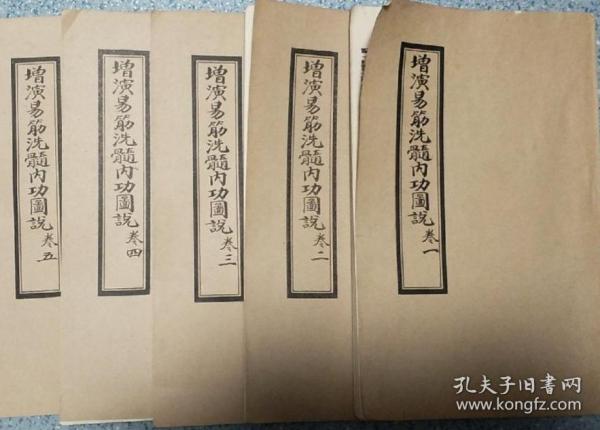 增演易筋洗髓內功圖說 卷一
增演易筋洗髓內功圖說 卷二
增演易筋洗髓內功圖說 卷三
增演易筋洗髓內功圖說 卷四
增演易筋洗髓內功圖說 卷五
孔夫子旧书网
www.kongfz.com